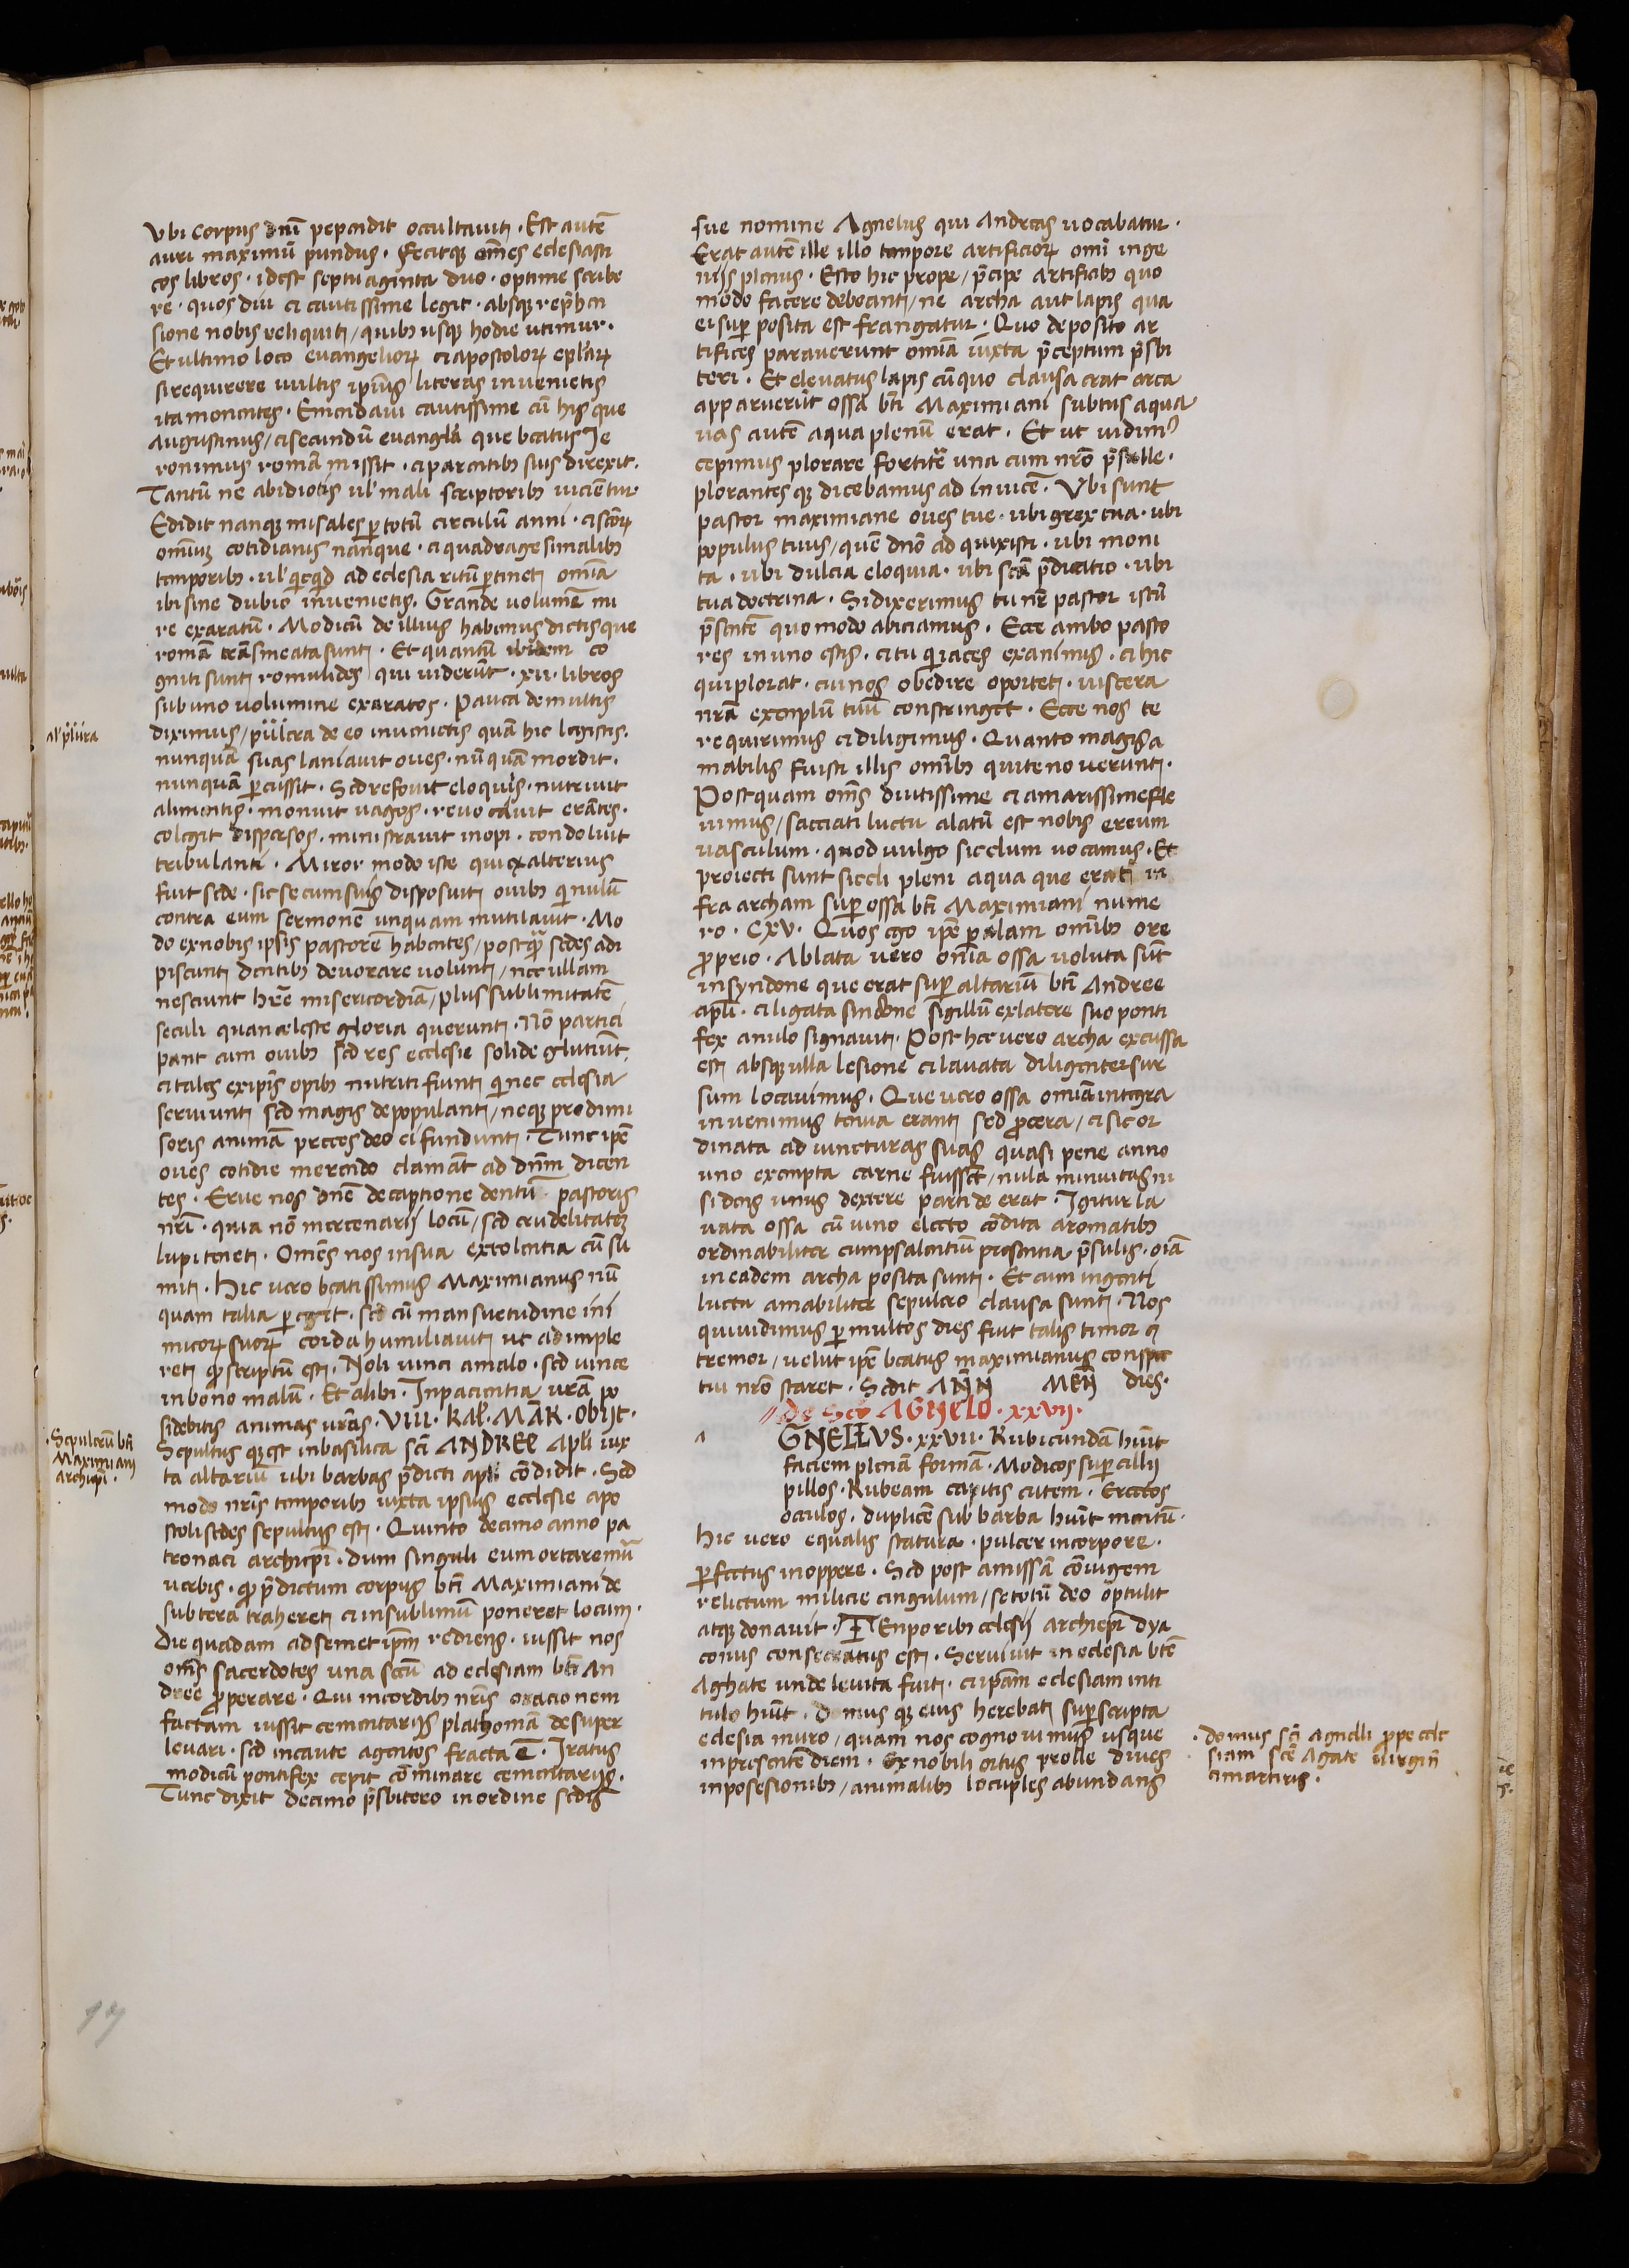 Vbi corpus dnī pependit occultauit. Est autē
auri maximū pundus. Fecitqꝫ om̄es eclesiasti
cos libros. idest septuaginta duo. optime scribe
re. quos diu et cautissime legit. absqꝫ rep̄hen
sione nobis reliquit / quibꝰ usqꝫ hodie utimur.
Et ultimo loco euangelioꝝ et apostoloꝝ ep̄laꝝ
si requirere uultis ipsius literas inuenietis
ita monentes. Emendaui cautissime cū his que
augustinus / et secundū euangla que beatus Ie
ronimus romā missit. et parentibꝰ suis direxit.
Tantū ne ab idiotis ul' mali scriptoribꝰ uicientur.
Edidit nanqꝫ misales ꝑ totū circulū anni. et scōꝝ
omniuꝫ cotidianis nanque. et quadragesimalibꝰ
temporibꝰ. ul' qicqid ad eclesia ritū ꝑtinet omīa
ibi sine dubio inuenietis. Grande uolumē mi
re exaratū. Modicū de illius habimus dictis que
romā trāsmeata sunt. Et quantū ibidem co
gniti sunt romulides qui uiderūt. xii. libros
sub uno uolumine exaratos. Pauca de multis
diximus / pulcra de eo inuenietis quā hic legistis.
nunquā suas laniauit oues. nūquā mordit.
nunquā ꝑcussit. Sed refouit eloquiis. nutriuit
alimentis. monuit uagos. reuocauit erātes.
colegit dispersos. ministrauit inopi. condoluit
tribulanti. Miror modo iste qui ex alterius
fuit sede. sic se cum suis disposuit ouibꝰ qi nulū
contra eum sermonē unquam mutilauit. Mo
do ex nobis ipsis pastorē habentes / postqȝ sedes adi
piscunt dentibꝰ deuorare uolunt / nec ullam
nesciunt hr̄e misericordiā / plus sublimitatē
seculi quan celeste gloria querunt. Nō partici
pant cum ouibꝰ sed res ecclesie solide glutiūt
et tales ex ipis opibꝰ nutriti fiunt qi nec eclesia
seruiunt sed magis depopulant / neqꝫ pro dimi
soris animā preces deo effundunt. Tunc ipē
oues cotidie merendo clamāt ad dnm̄ dicen
tes. Erue nos dnē de captione dentū pastoris
nr̄i. quia nō mercenarii locū / sed crudelitateꝫ
lupi tenet. Omēs nos in sua extolentia cū su
mit. Hic uero beatissimus Maximianus nū
quam talia ꝑegit. sed cū mansuetudine ini
micoꝝ suoꝝ corda humiliauit ut adimple
ret qd scriptū est. Noli uinci a malo. sed uince
in bono malū. Et alibi. In pacientia urā po
sidebitis animas urās. VIII. KAL. MAR. OBIIT.
Sepultus qꝫ est in basilica sci ANDREE Apli iux
ta altariū ubi barbas p̄dicti apli cōdidit. Sed
modo nr̄is temporibꝰ iuxta ipsius ecclesie apo
stoli sedes sepultus est. Quinto decimo anno pe
tronaci archiepi. dum singuli eum ortaremur
uerbis. qd p̄dictum corpus bti Maximiani de
subtera traheret et in sublimū poneret locum.
die quadam ad semet ipm̄ rediens. iussit nos
om̄s sacerdotes una secū ad eclesiam bti An
dree ꝓperare. Qui in cordibꝰ nr̄is oracionem
factam iussit cementariis plathomā desuper
leuari. sed incaute agentes fracta ē. Iratus
modicū pontifex cepit cōminare cementariis.
Tunc dixit decimo p̄sbitero in ordine sedis
al' plura
.Sepulcrū bti
Maximiani
archiepi.
sue nomine Agnelus qui Andreas uocabatur.
Erat autē ille illo tempore artificioꝝ omī inge
niis plenus. Esto hic prope / p̄cipe artificibꝰ quo
modo facere debeant / ne archa aut lapis qua
ei suꝑ posita est frangatur. Quo deposito ar
tifices parauerunt omīa iuxta p̄ceptum p̄sbi
teri. Et eleuatus lapis cū quo clausa erat arca
apparuerūt ossa bti Maximiani subtus aqua
uas autē aqua plenū erat. Et ut uidimꝰ
cepimus plorare fortitē una cum nr̄o p̄sulle.
plorantes qꝫ dicebamus ad inuicē. Vbi sunt
pastor maximiane oues tue. ubi grex tua. ubi
populus tuus / quē dnō adquixisti. ubi moni
ta. ubi dulcia eloquia. ubi scā p̄dicatio. ubi
tua doctrina. Si dixerimus tu nr̄ pastor istū
p̄sentē quomodo abiciamus. Ecce ambo pasto
res in uno estis. et tu qi iaces exanimis. et hic
qui plorat. cui nos obedire oportet. uiscera
nrā exemplū tuū constringet. Ecce nos te
requirimus et diligimus. Quanto magis a
mabilis fuisti illis omībꝰ qui te nouerunt.
Postquam om̄s diutissime et amarissime fle
uimus / sacciati luctu alatū est nobis ereum
uasculum. quod uulgo siccلum uocamus. Et
proiecti sunt siceli pleni aqua que erat in
fra archam suꝑ ossa bti Maximiani nume
ro. CXV. Quos ego ipē ꝑalam omībꝰ ore
ꝓprio. Ablata uero omīa ossa uoluta sūt
in syndone que erat suꝑ altariū bti Andree
apli. et ligata sindone sigillū ex latere suo ponti
fex anulo signauit. Post hec uero archa excussa
est absqꝫ ulla lesione et lauata diligenter sur
sum locauimus. Que uero ossa omīa integra
inuenimus tenua erant sed ꝓcera / et sic or
dinata ad iuncturas suas quasi pene anno
uno exempta carne fuisset / nula minuitas ni
si dens unus dextere parti de erat. Igitur la
uata ossa cū uino electo cōdita aromatibꝰ
ordinabiliter cum psalentiū presentia p̄sulis. oīa
in eadem archa posita sunt. Et cum ingenti
luctu amabiliter sepulcro clausa sunt. Nos
qui uidimus ꝑ multos dies fuit talis timor et
tremor / uelut ipē beatus maximianus conspec
tui nr̄o staret. Sedit ANN MEN dies.
de Scō AGNELO. xxvii.
A
GNELLVS. xxvii. Rubicundā hūit
faciem plenā formā. Modicos suꝑcillii
pillos. Rubeam capitis cutem. Erectos
oculos. duplicē sub barba hūit mentū.
Hic uero equalis statura. pulcer in corpore.
ꝑfectus in oppere. Sed post amissā cōiugem
relictum milicie cingulum / se totū deo optulit
atqꝫ donauit. TEnporibꝰ eclesii archiepi dya
conus consecratus est. Seruiuit in eclesia bte
Aghate unde leuita fuit. et ipam eclesiam inti
tulo hūit. Domus qꝫ eius herebat suꝑscripta
eclesia muro / quam nos cognouimus usque
in presentē diem. Ex nobili ortus prolle diues
in posesionibꝰ / animalibꝰ locuples abundans
. domus sci Agnelli ꝓpe ecle
siam scē Agate uirginis
et martiris.
17